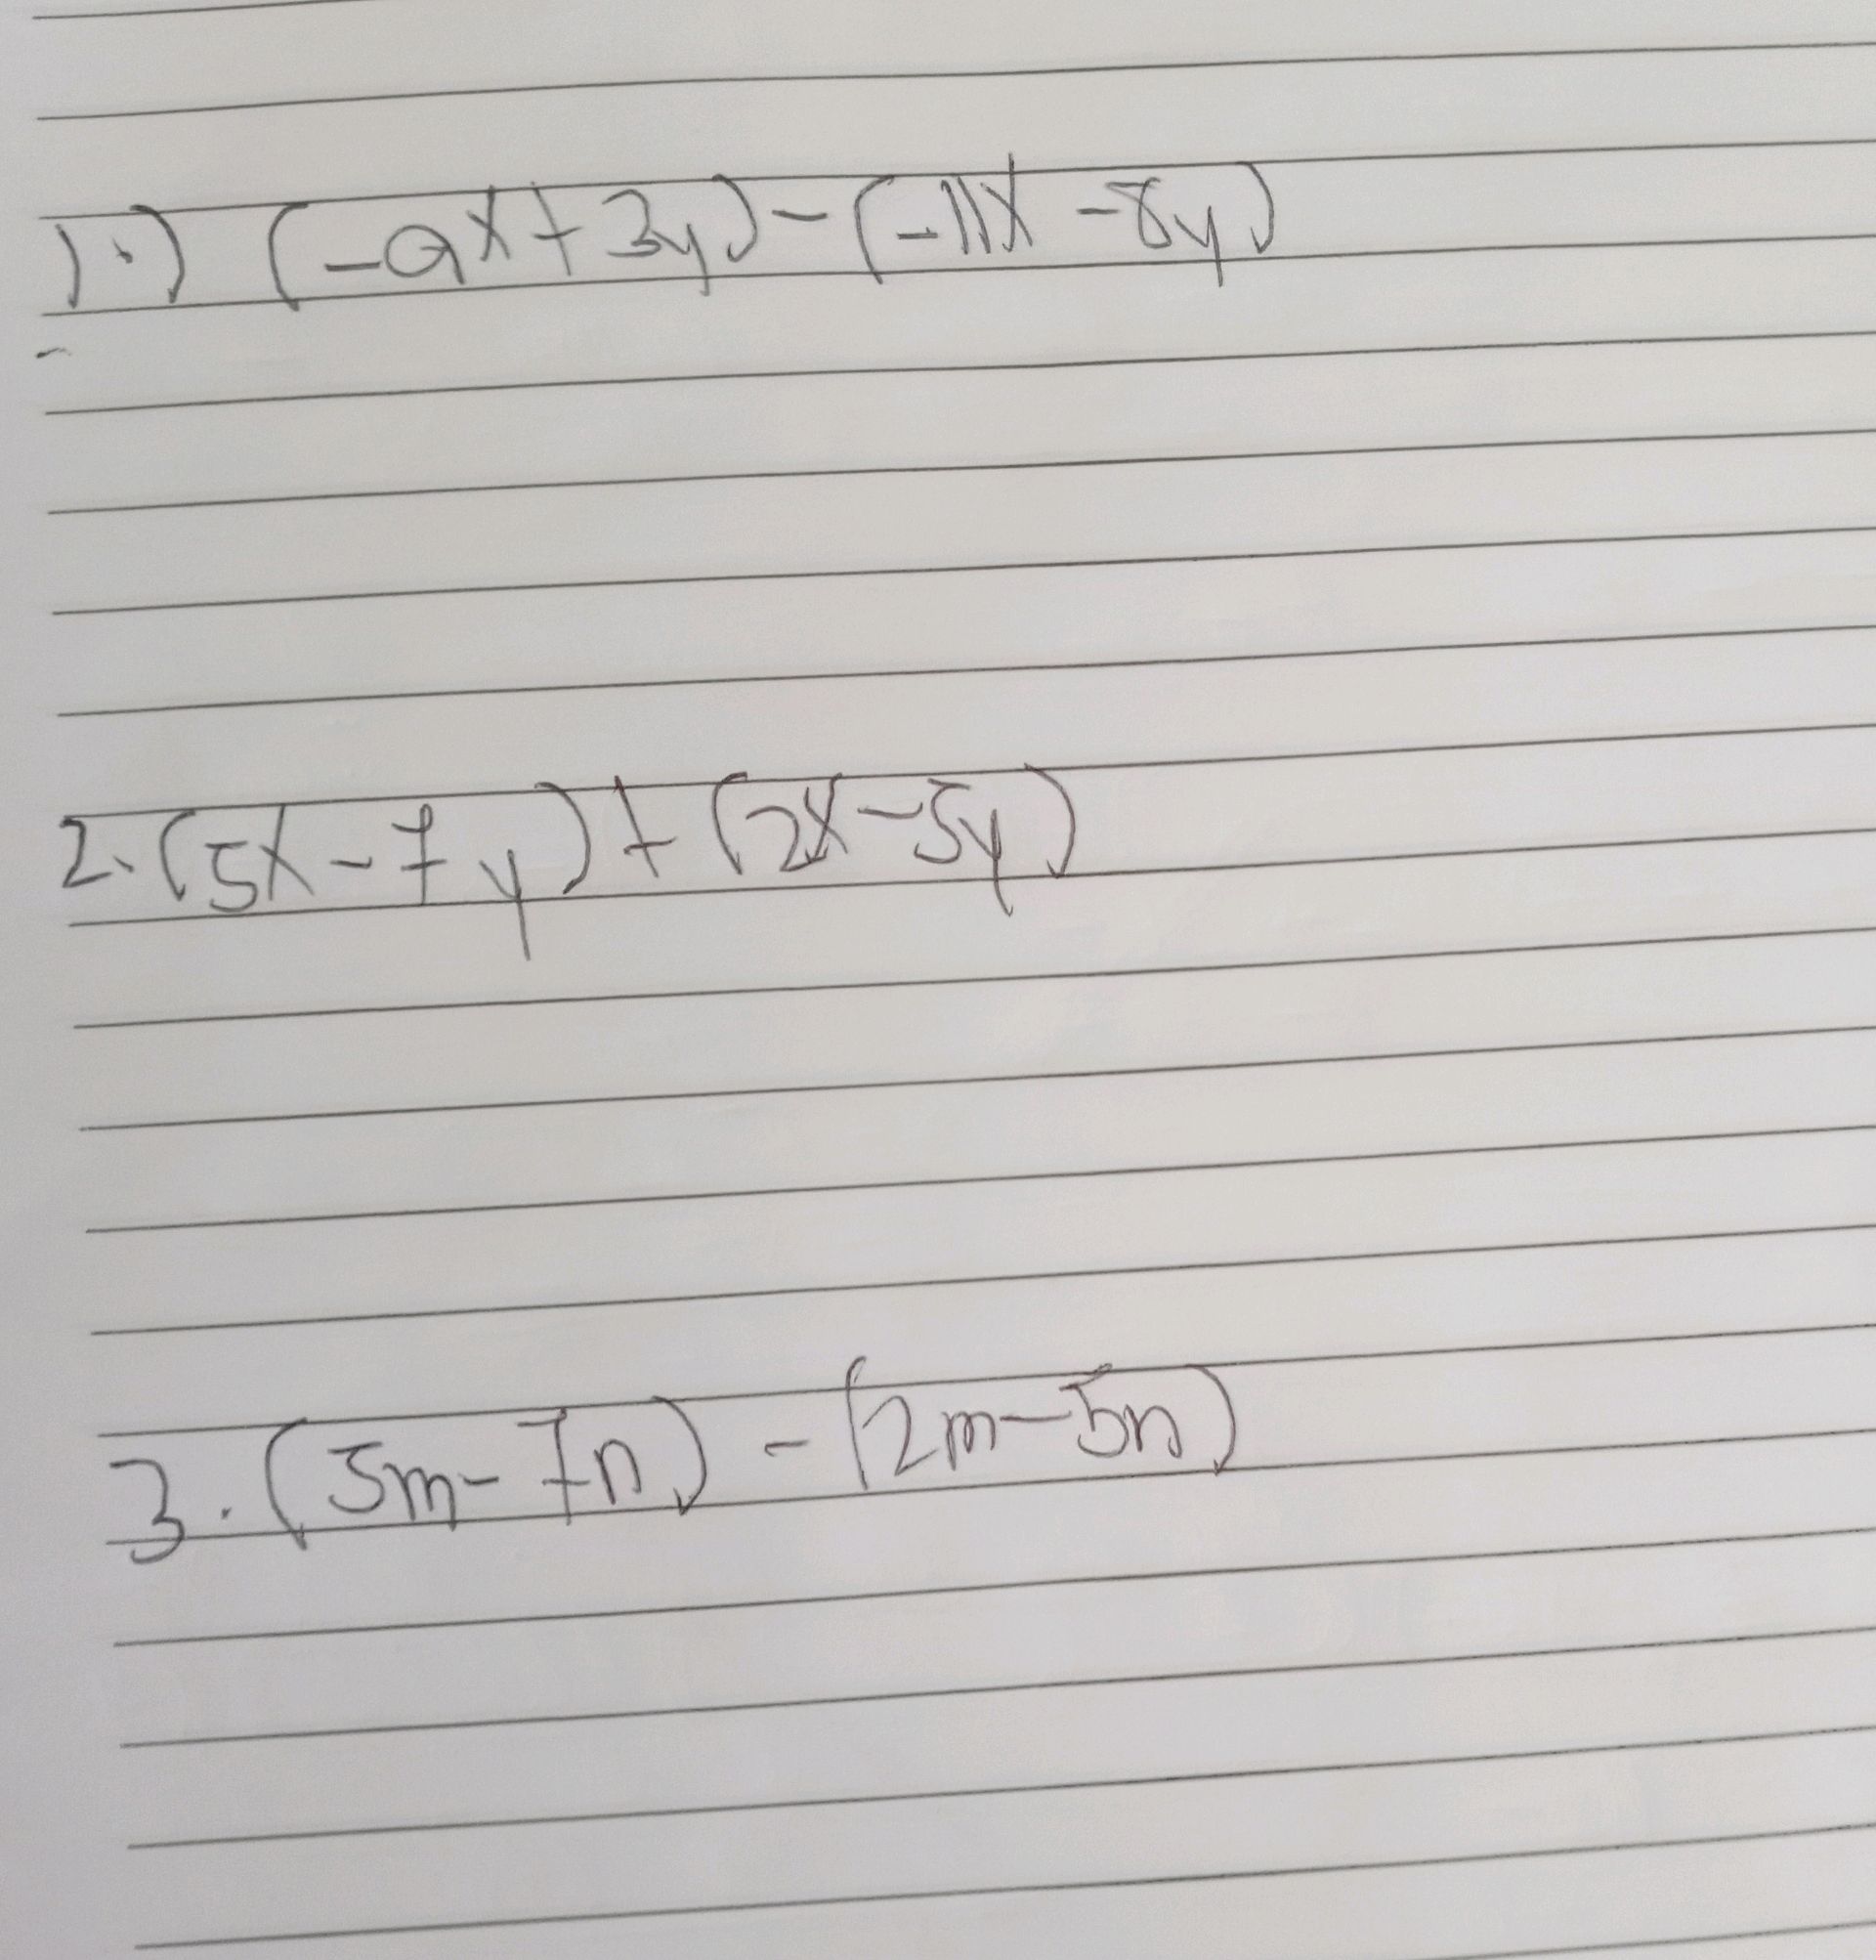 1.) (-9x+3y)-(-11x-8y)
2. (5x-7y)+(2x-5y)
3. (5m-7n)-(2m-5n)